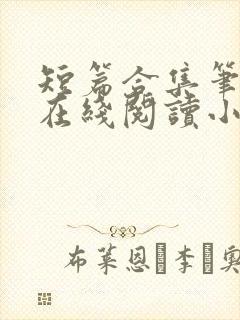 短篇合集筆
在綫閱讀小
布萊恩·李·奧